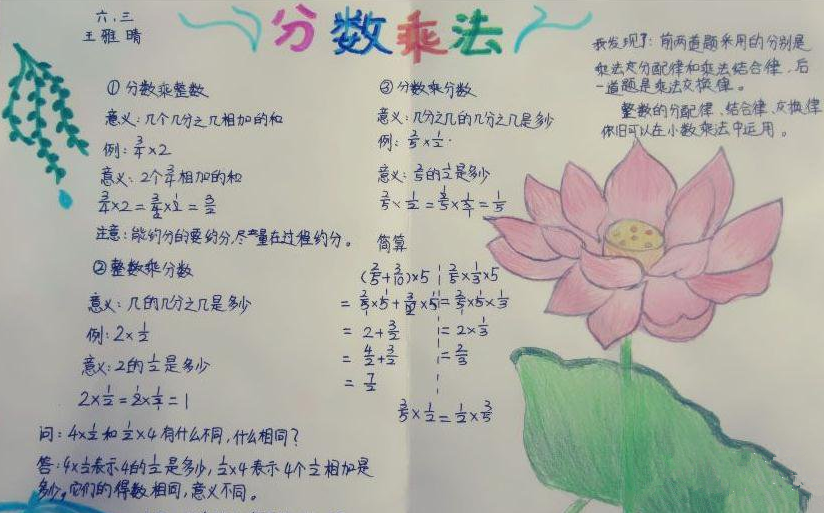 六.三
王雅晴
分数乘法
① 分数乘整数
意义:几个几分之几相加的和
例: 3/4 × 2
意义: 2个3/4相加的和
3/4 × 2 = 3/4 × 2 = 3/2
注意:能约分的要约分,尽量在过程约分。
② 整数乘分数
意义:几的几分之几是多少
例: 2 × 1/2
意义: 2的1/2是多少
2 × 1/2 = 2 × 1/2 = 1
问: 4×1/2 和 1/2×4 有什么不同,什么相同?
答: 4×1/2表示4的1/2是多少, 1/2×4 表示4个1/2相加是
多少。它们的得数相同,意义不同。
③ 分数乘分数
意义:几分之几的几分之几是多少
例: 2/5 × 1/2.
意义: 2/5的1/2是多少
2/5 × 1/2 = 2/5 × 1/2 = 1/5
简算
(2/5 + 3/10) × 5
= 2/5 × 5 + 3/10 × 5
= 2 + 3/2
= 4/2 + 3/2
= 7/2
2/5 × 1/3 × 5
= 2/5 × 5 × 1/3
= 2 × 1/3
= 2/3
3/5 × 1/2 = 1/2 × 3/5
我发现了: 前两道题采用的分别是
乘法分配律和乘法结合律,后
一道题是乘法交换律。
整数的分配律、结合律、交换律
依旧可以在小数乘法中运用。